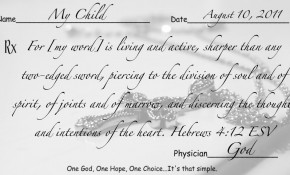 Name My Child Date August 10, 2011
Rx For [my word] is living and active, sharper than any
two-edged sword, piercing to the division of soul and of
spirit, of joints and of marrow, and discerning the thoughts
and intentions of the heart. Hebrews 4:12 ESV
Physician God
One God, One Hope, One Choice...It's that simple.